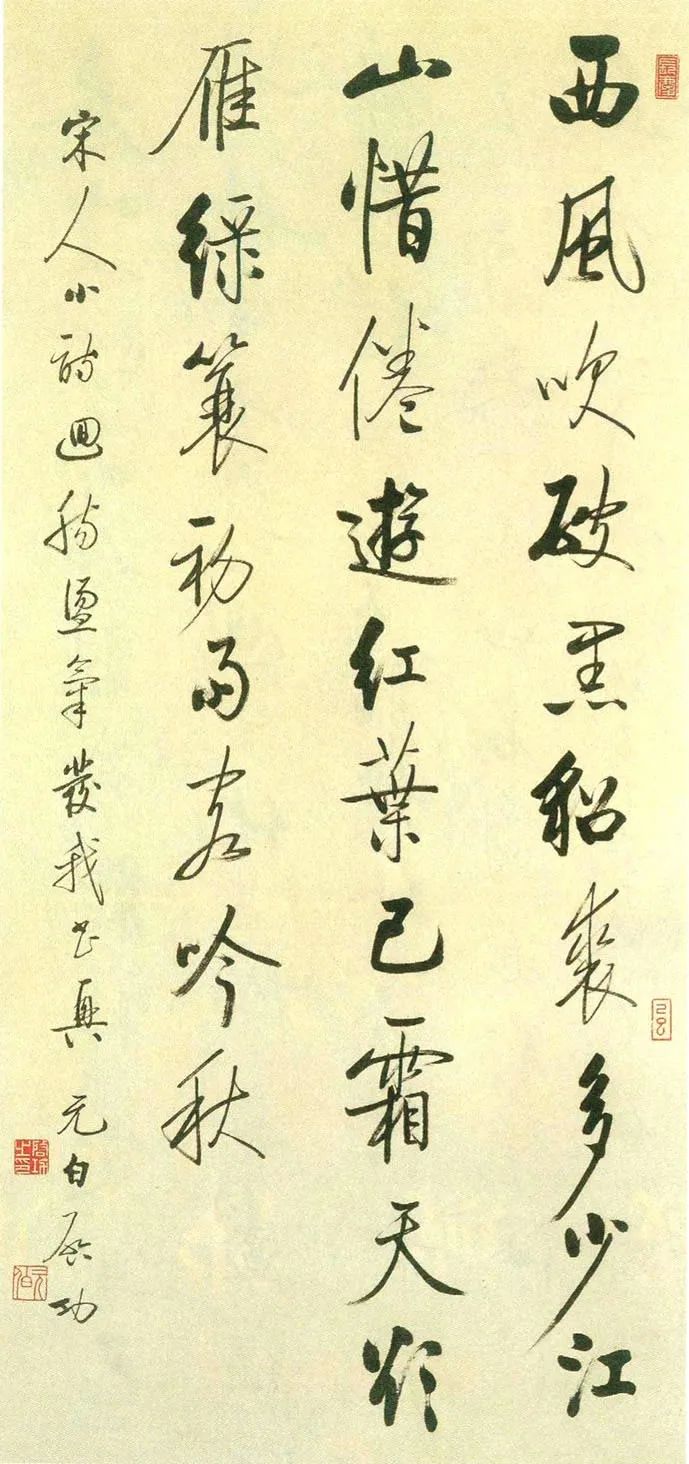 西風吹破黑貂裘多少江
山惜倦遊紅葉已霜天欲
雁綠簑初雨客吟秋
宋人小詩迴腸盪氣發我書興 元白啟功